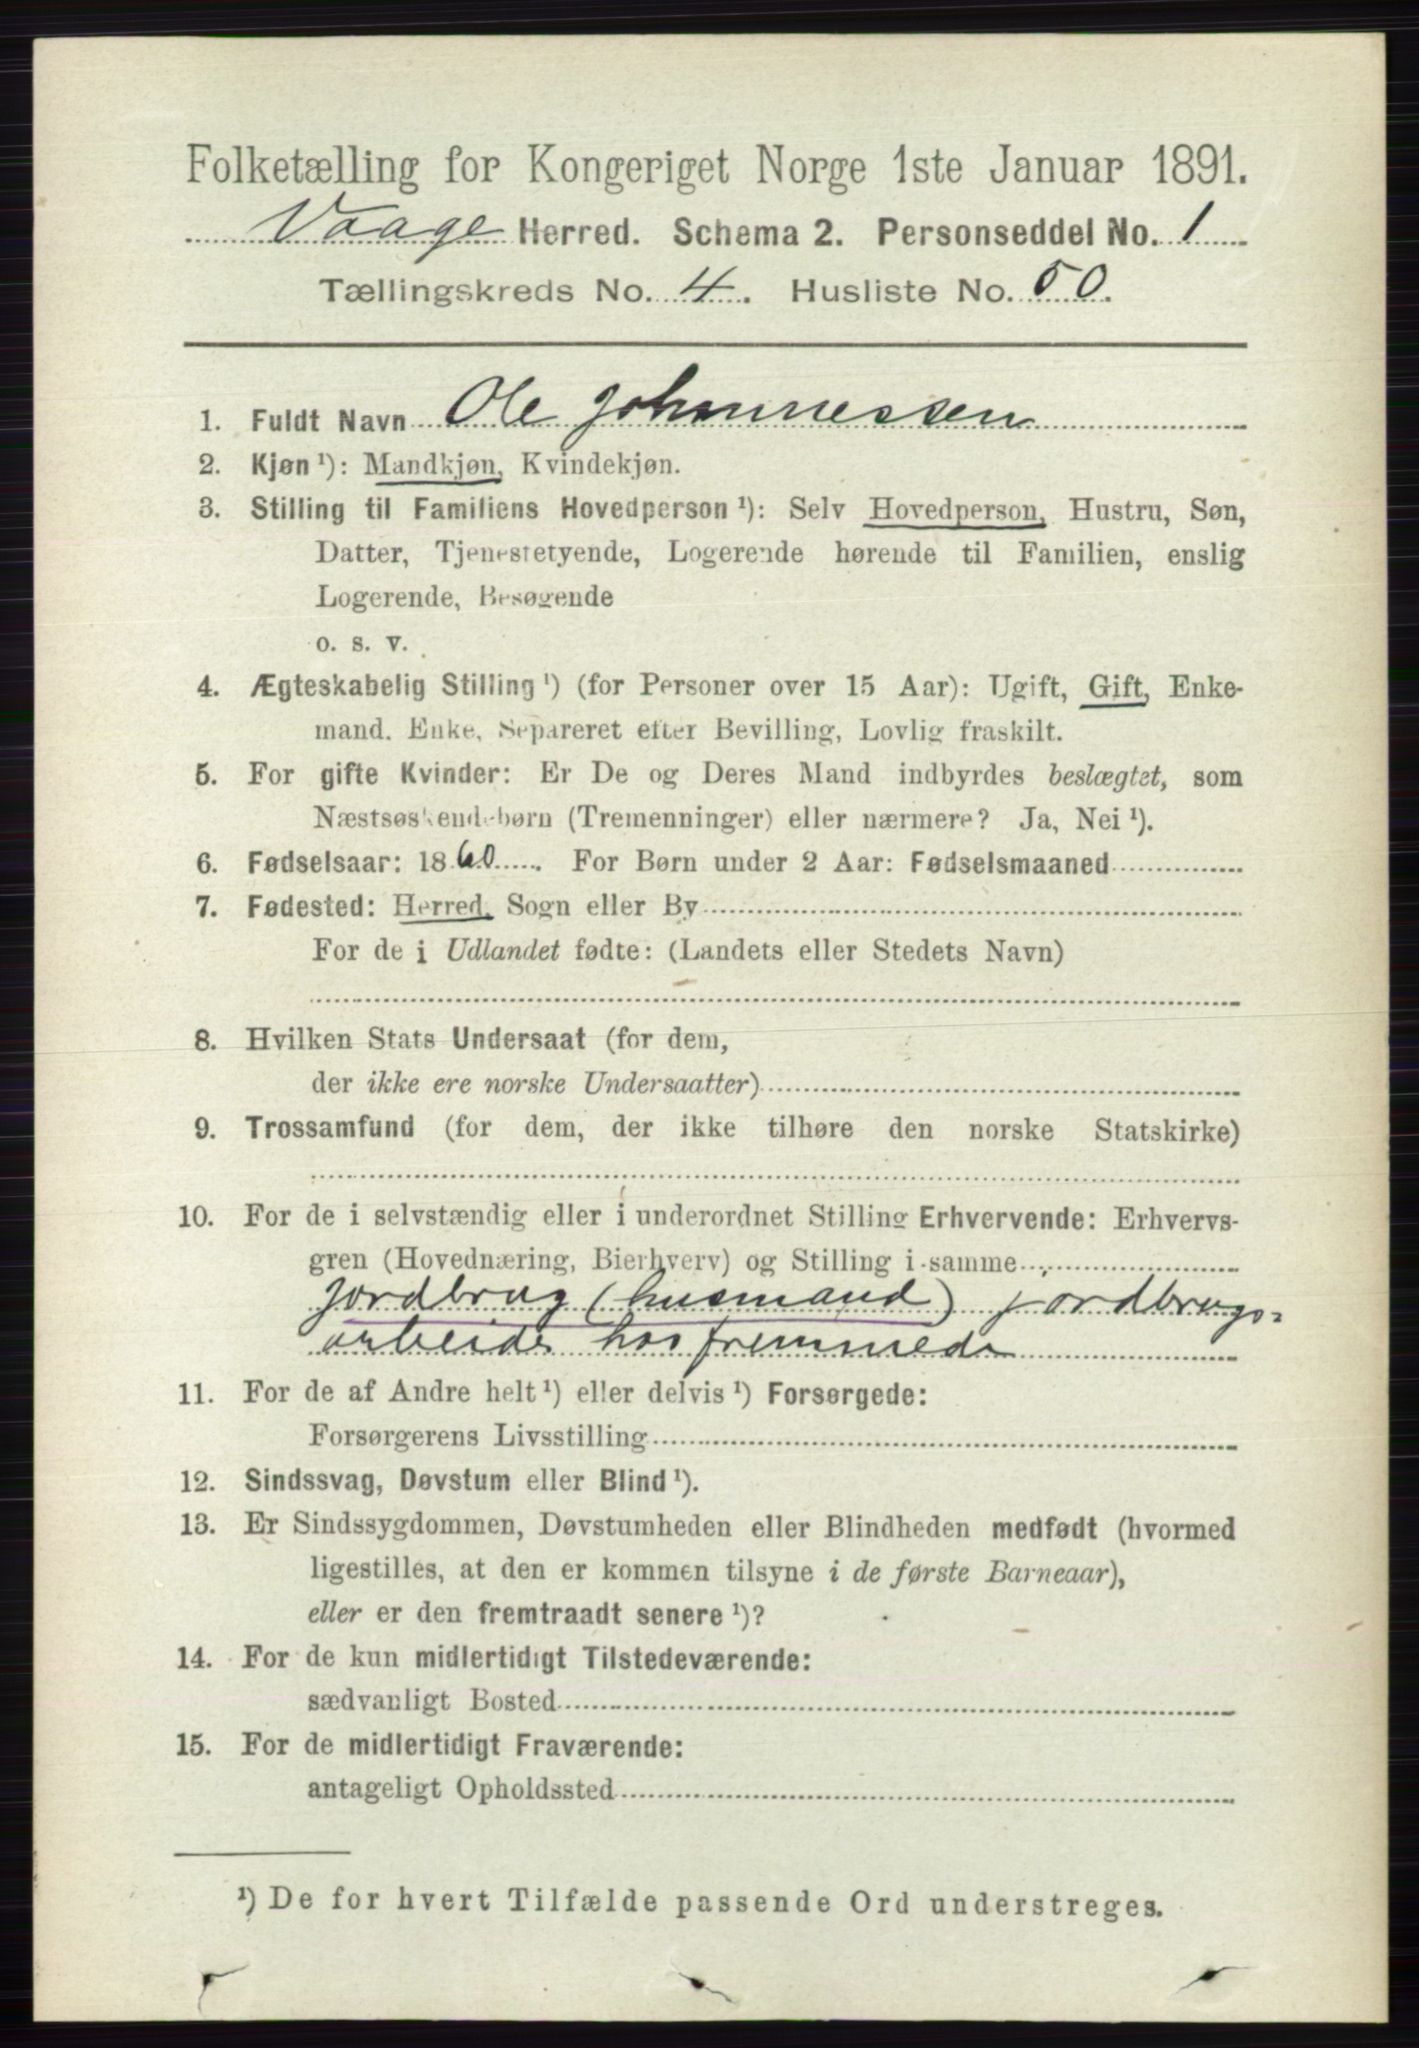 Folketælling for Kongeriget Norge 1ste Januar 1891.
Vaage Herred. Schema 2. Personseddel No. 1
Tællingskreds No. 4. Husliste No. 50.
1. Fuldt Navn Ole Johannessen
2. Kjøn ¹): Mandkjøn, Kvindekjøn.
3. Stilling til Familiens Hovedperson ¹): Selv Hovedperson, Hustru, Søn,
Datter, Tjenestetyende, Logerende hørende til Familien, enslig
Logerende, Besøgende
o. s. v.
4. Ægteskabelig Stilling ¹) (for Personer over 15 Aar): Ugift, Gift, Enke-
mand, Enke, Separeret efter Bevilling, Lovlig fraskilt.
5. For gifte Kvinder: Er De og Deres Mand indbyrdes beslægtet, som
Næstsøskendebørn (Tremenninger) eller nærmere? Ja, Nei ¹).
6. Fødselsaar: 1860. For Børn under 2 Aar: Fødselsmaaned
7. Fødested: Herred, Sogn eller By
For de i Udlandet fødte: (Landets eller Stedets Navn)
8. Hvilken Stats Undersaat (for dem,
der ikke ere norske Undersaatter)
9. Trossamfund (for dem, der ikke tilhøre den norske Statskirke)
10. For de i selvstændig eller i underordnet Stilling Erhvervende: Erhvervs-
gren (Hovednæring, Bierhverv) og Stilling i samme
jordbrug (husmand) jordbrugs-
arbeide hos fremmede
11. For de af Andre helt ¹) eller delvis ¹) Forsørgede:
Forsørgerens Livsstilling
12. Sindssvag, Døvstum eller Blind ¹).
13. Er Sindssygdommen, Døvstumheden eller Blindheden medfødt (hvormed
ligestilles, at den er kommen tilsyne i de første Barneaar),
eller er den fremtraadt senere ¹)?
14. For de kun midlertidigt Tilstedeværende:
sædvanligt Bosted
15. For de midlertidigt Fraværende:
antageligt Opholdssted
¹) De for hvert Tilfælde passende Ord understreges.